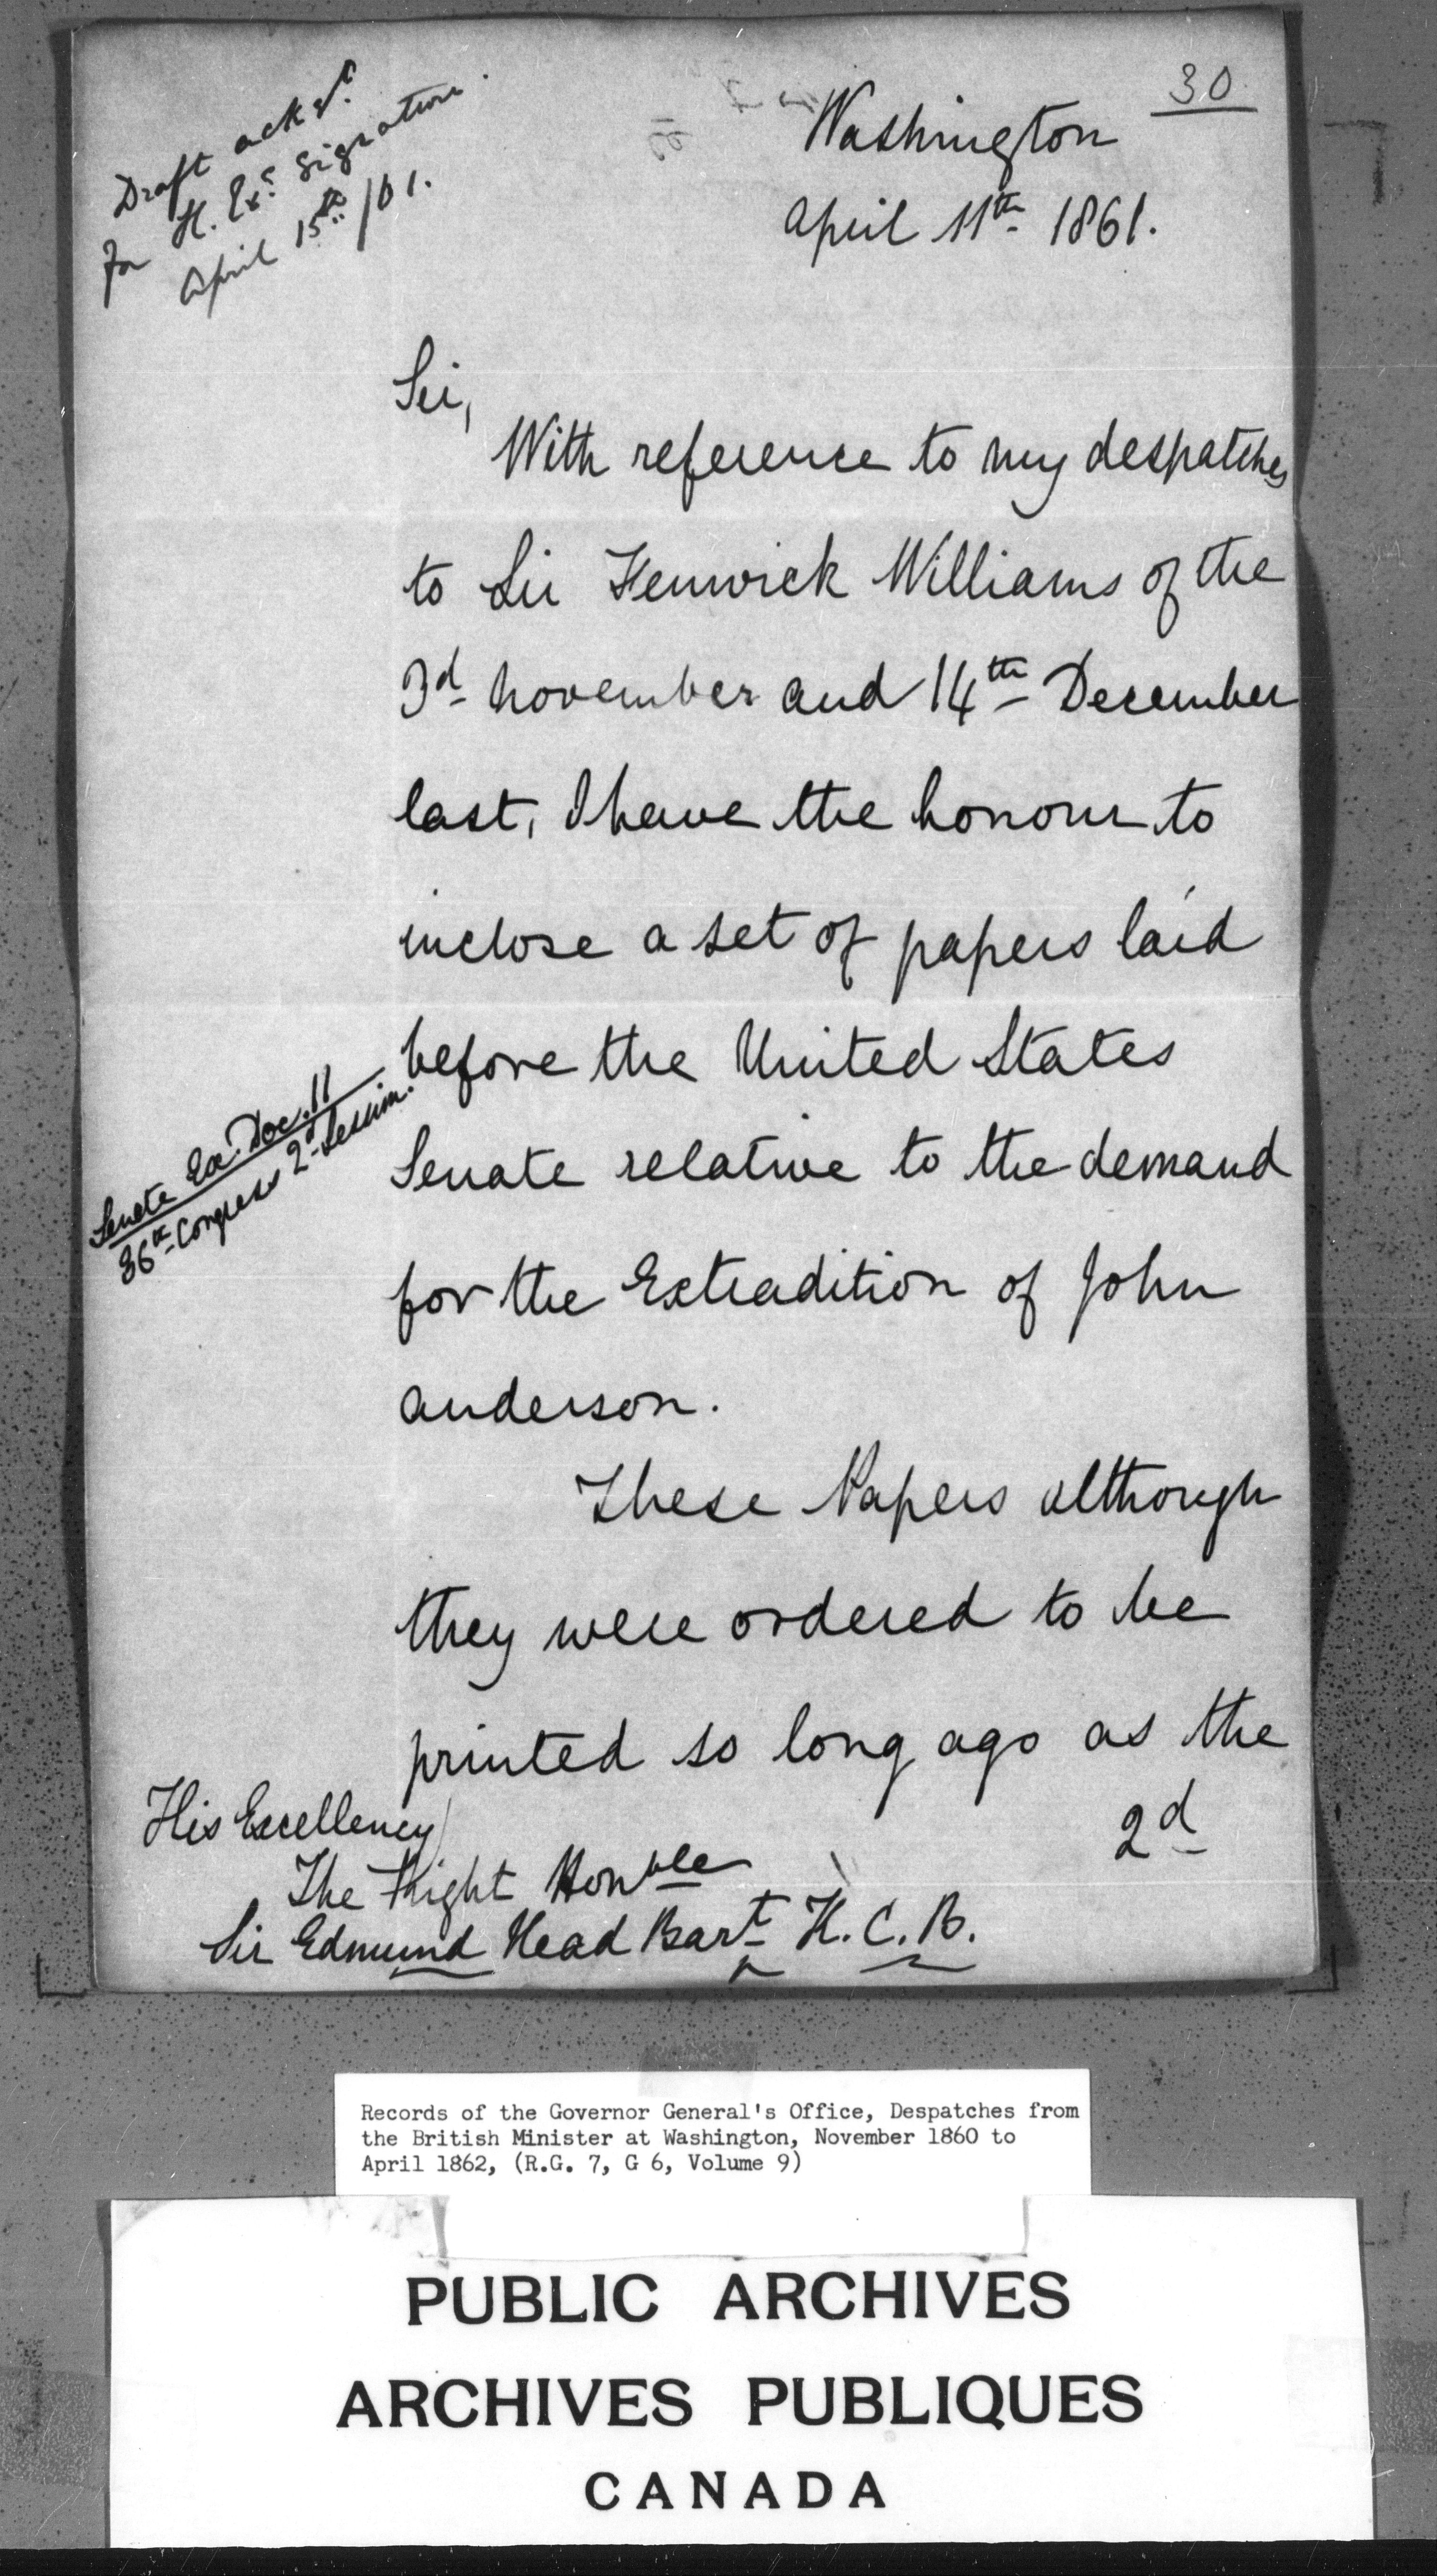 30
Washington
April 11th 1861.
Draft ackgt
for H. Exs signation
April 15th /61.
Sir,
With reference to my despatches
to Sir Fenwick Williams of the
3d November and 14th December
last, I have the honour to
inclose a set of papers laid
before the United States
Senate Ex. Doc. 11
36th Congress 2d Session.
Senate relative to the demand
for the Extradition of John
Anderson.
These Papers although
they were ordered to be
printed so long ago as the
2d
His Excellency
The Right Honble
Sir Edmund Head Bart K.C.B.
Records of the Governor General's Office, Despatches from
the British Minister at Washington, November 1860 to
April 1862, (R.G. 7, G 6, Volume 9)
PUBLIC ARCHIVES
ARCHIVES PUBLIQUES
CANADA